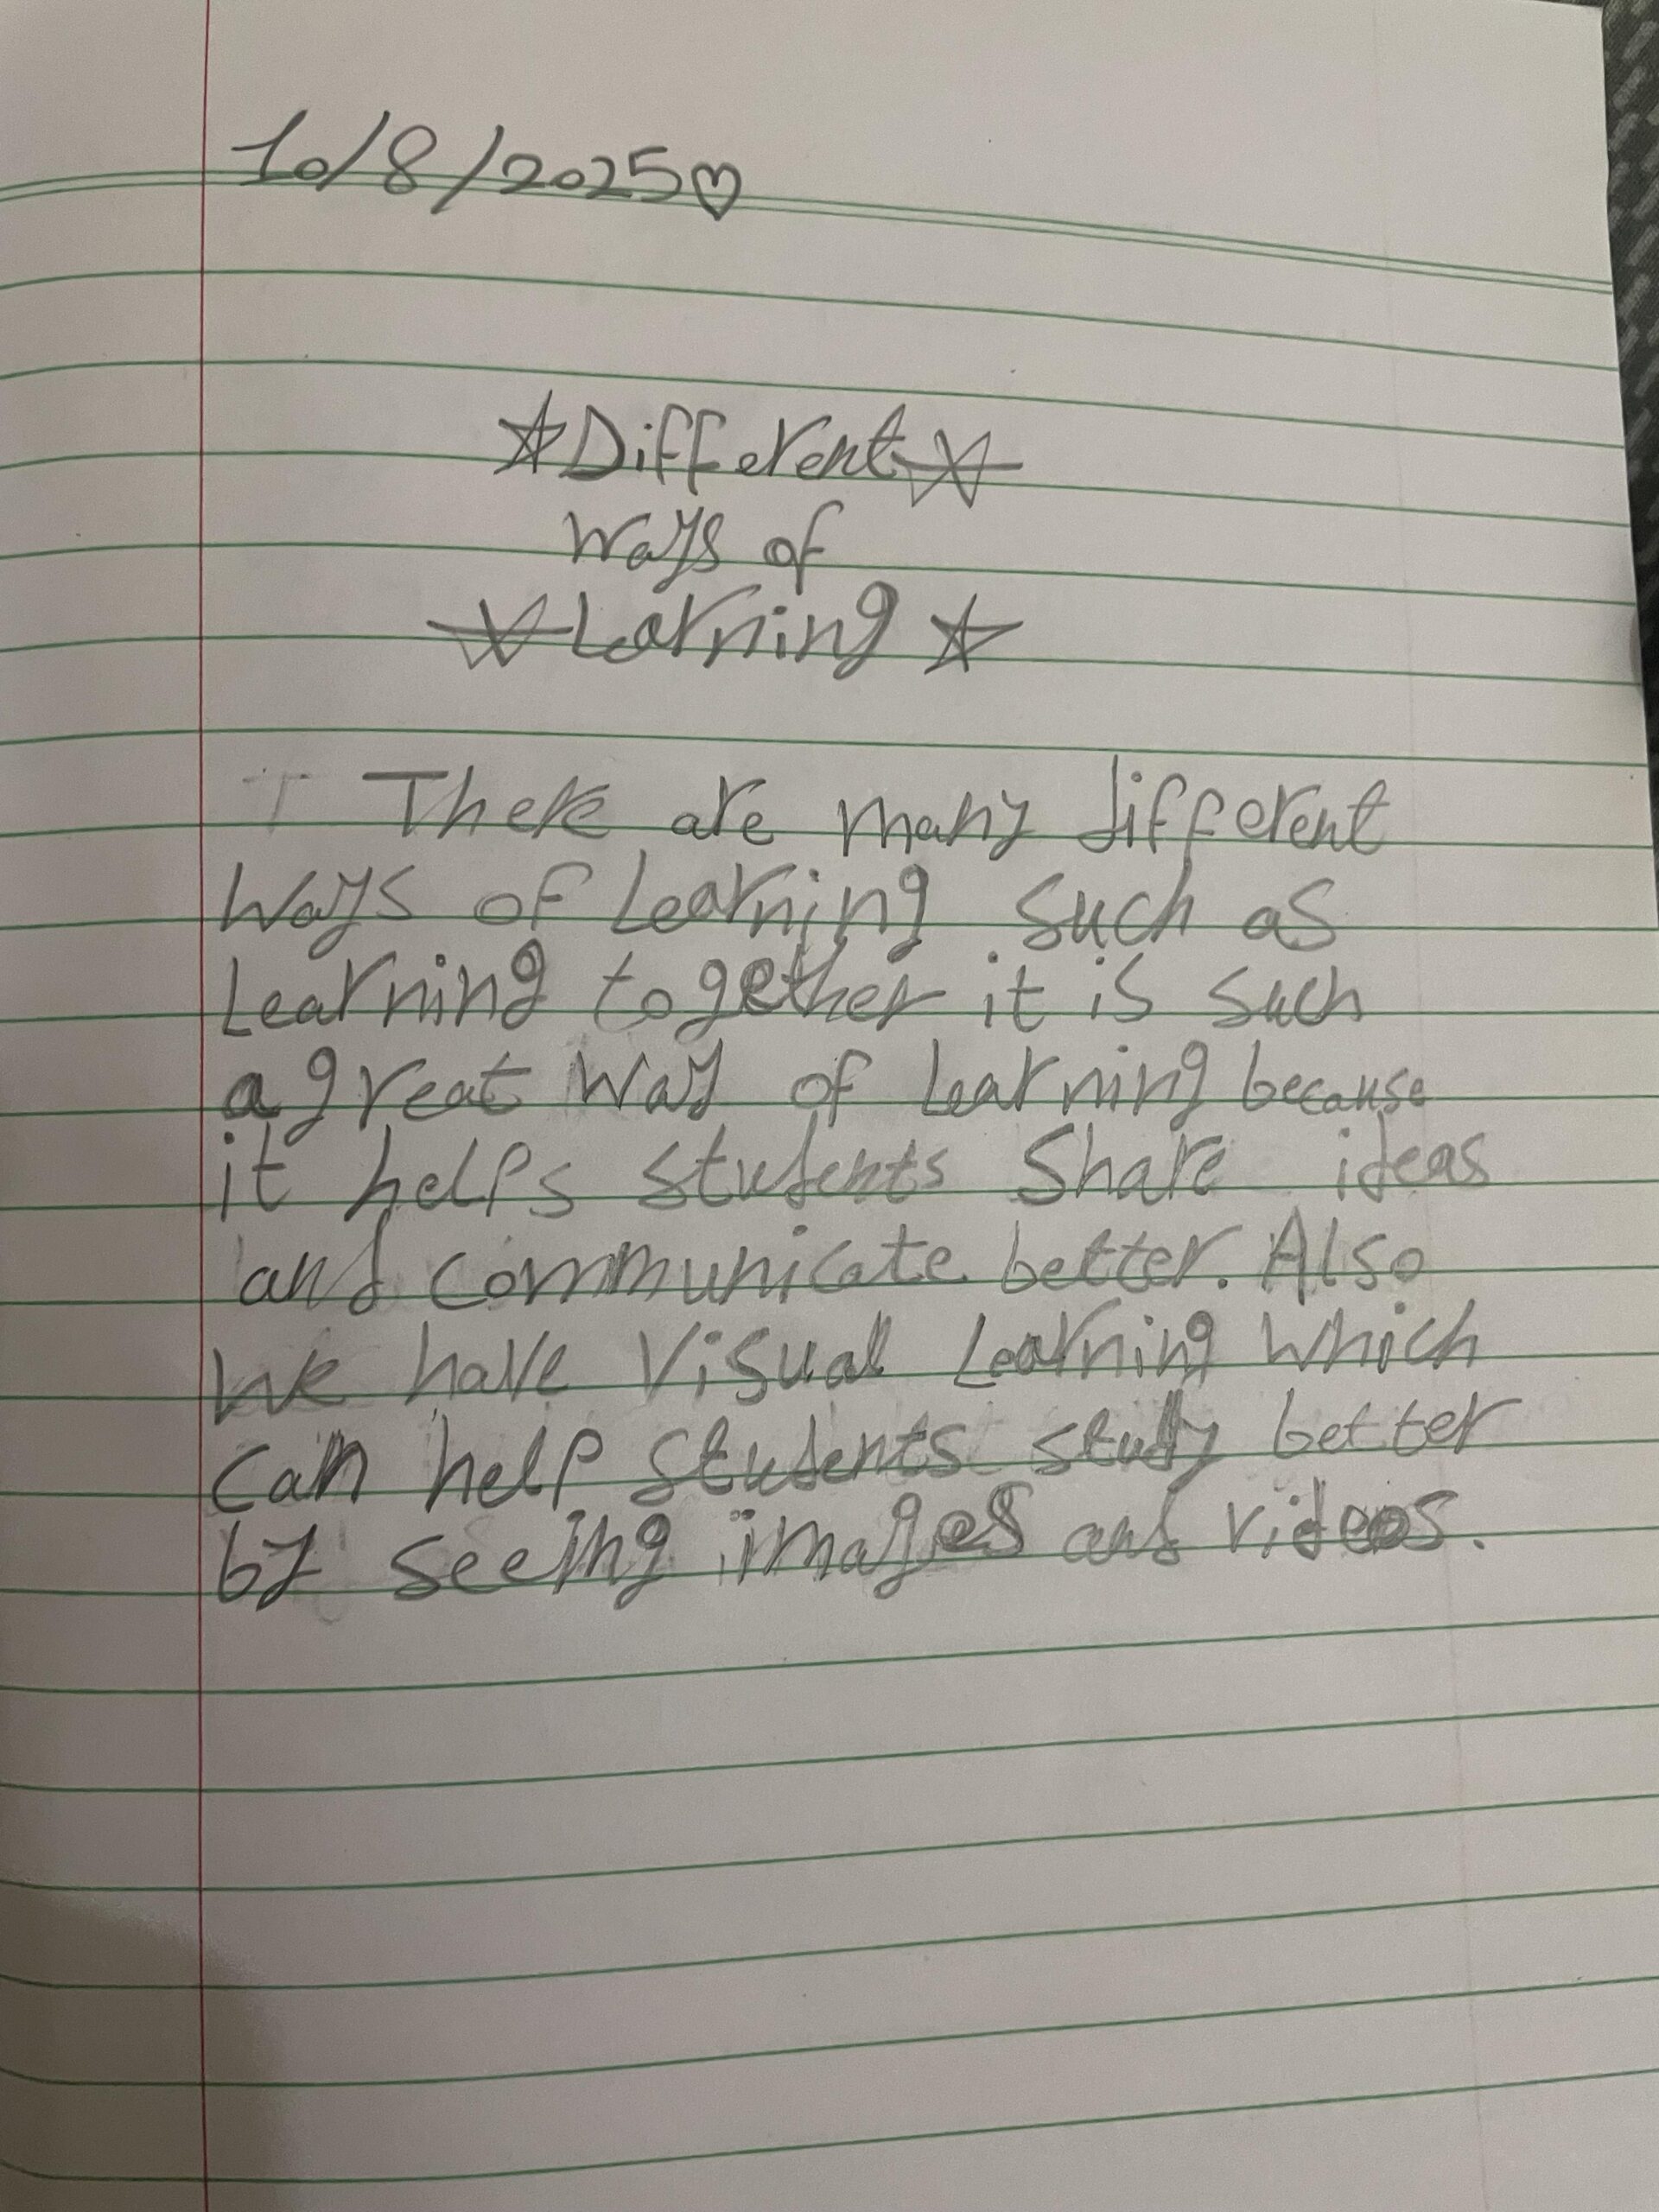 10/8/2025♡
☆Different☆
ways of
☆Learning☆
There are many different
ways of learning such as
Learning together it is such
a great way of learning because
it helps students share ideas
and communicate better. Also
we have visual learning which
can help students study better
by seeing images and videos.